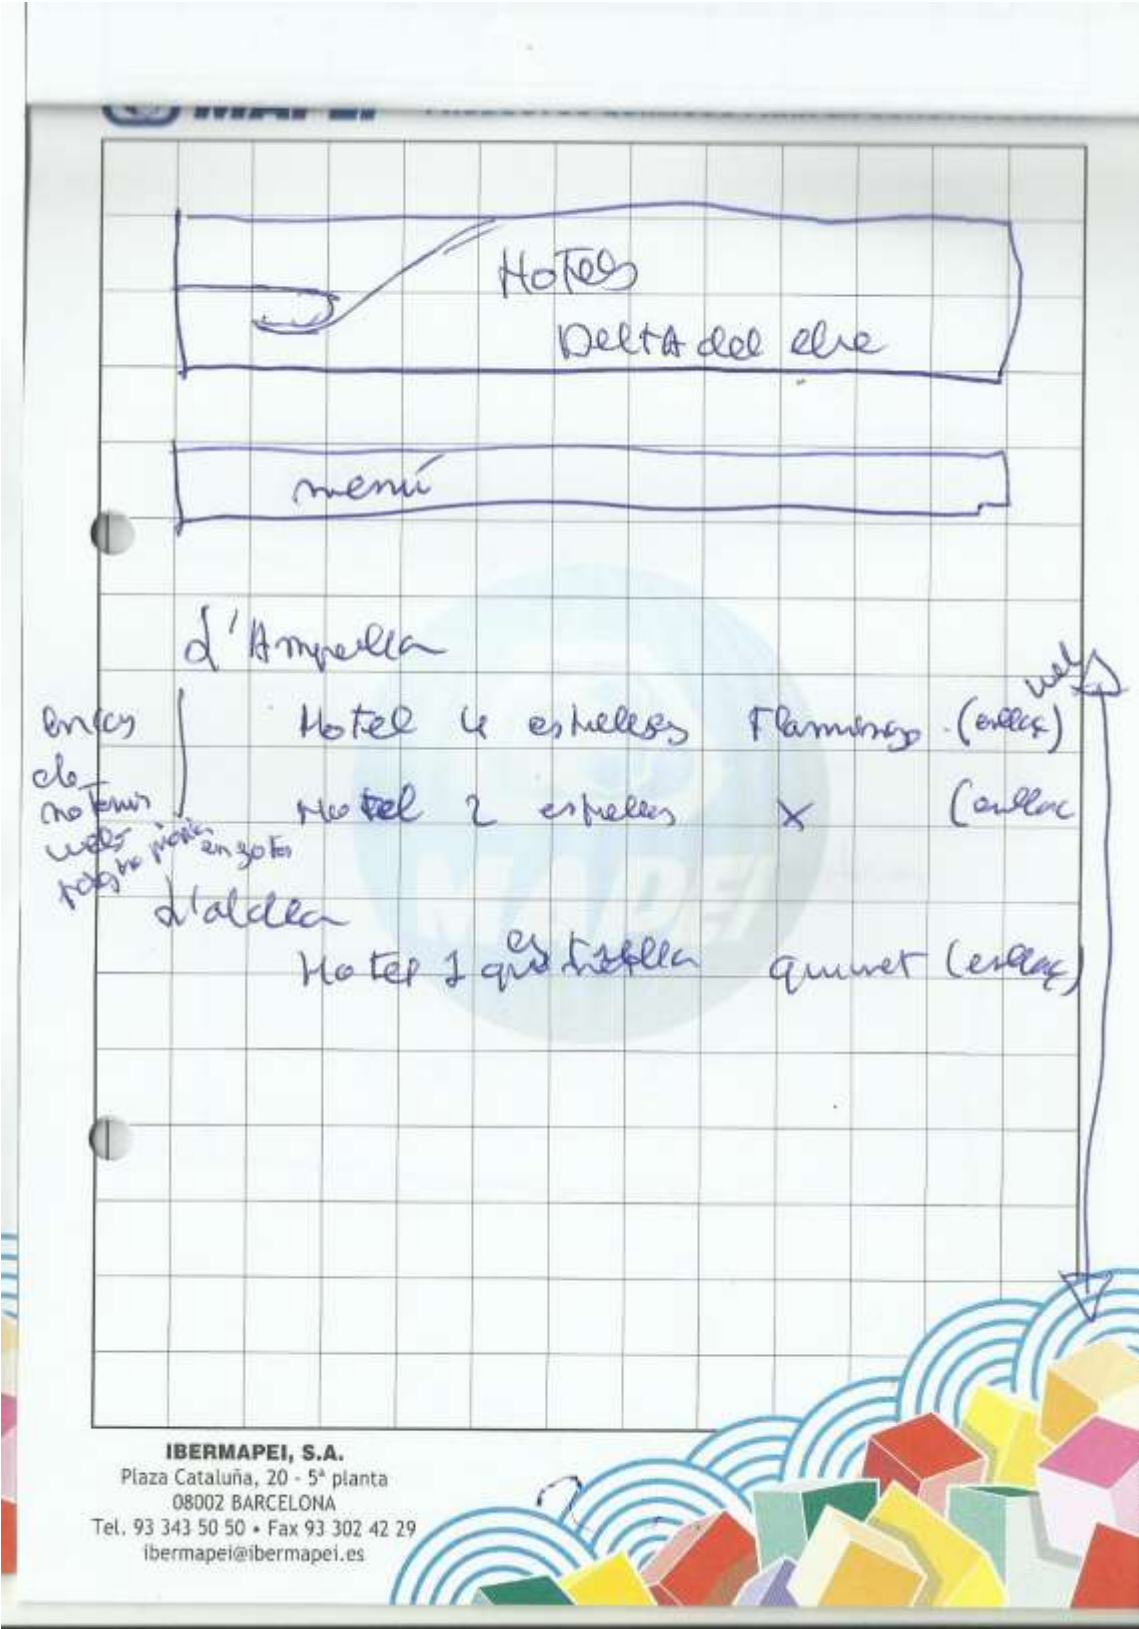 MAPEI
Hotels
Delta del ebre
menú
L'Ampolla
web
Hotel 4 estrelles Flamingo (enllaç)
en cas
de
no tenir
web
Hotel 2 estrelles X (enllaç
L'aldea
Hotel 1 estrella quinet (enllaç)
MAPEI
IBERMAPEI, S.A.
Plaza Cataluña, 20 - 5ª planta
08002 BARCELONA
Tel. 93 343 50 50 • Fax 93 302 42 29
ibermapei@ibermapei.es